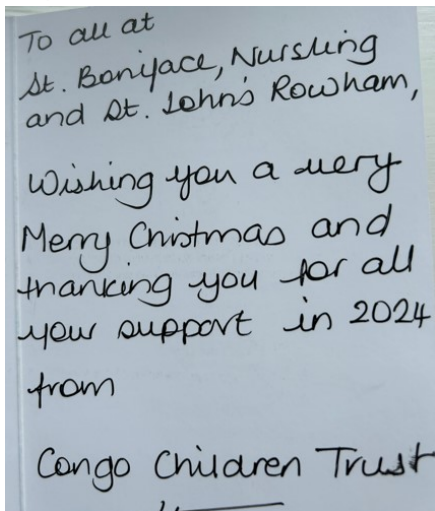 To all at
St. Boniface, Nursling
and St. John's Rowham,
Wishing you a very
Merry Christmas and
thanking you for all
your support in 2024
from
Congo Children Trust